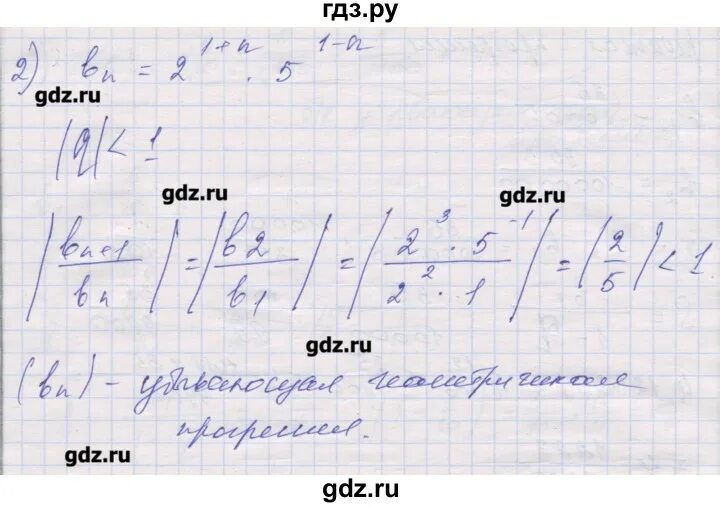 гдз.ру
2) bₙ = 2¹⁺ⁿ · 5¹⁻ⁿ
gdz.ru
|q| < 1
gdz.ru gdz.ru
|bₙ₊₁ / bₙ| = |b₂ / b₁| = |2³ · 5⁻¹ / 2² · 1| = |2/5| < 1
gdz.ru
(bₙ) - убывающая геометрическая
прогрессия.
gdz.ru
gdz.ru